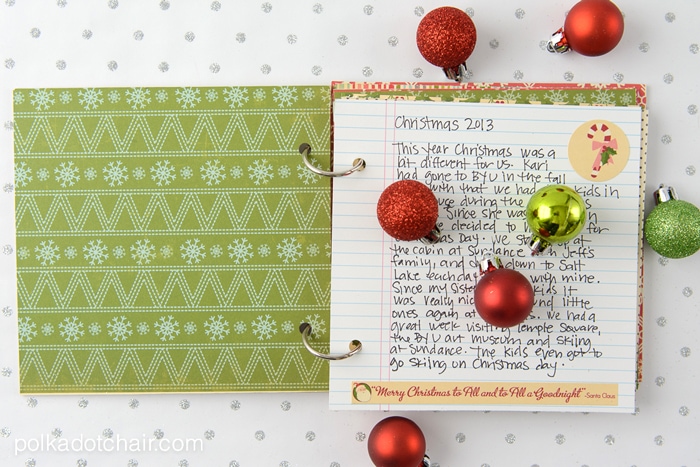 Christmas 2013
This year Christmas was a
bit different for us. Kari
had gone to BYU in the fall
with that we had kids in
during the
Since she was in
decided to for
Day. We at
the cabin at Sundance Jeff's
family, and down to Salt
Lake each day with mine.
Since my sister kids it
was really little
ones again at We had a
great week visiting Temple Square,
the BYU art museum and skiing
at Sundance. The kids even got to
go skiing on Christmas day.
"Merry Christmas to All and to All a Goodnight" -Santa Claus
polkadotchair.com